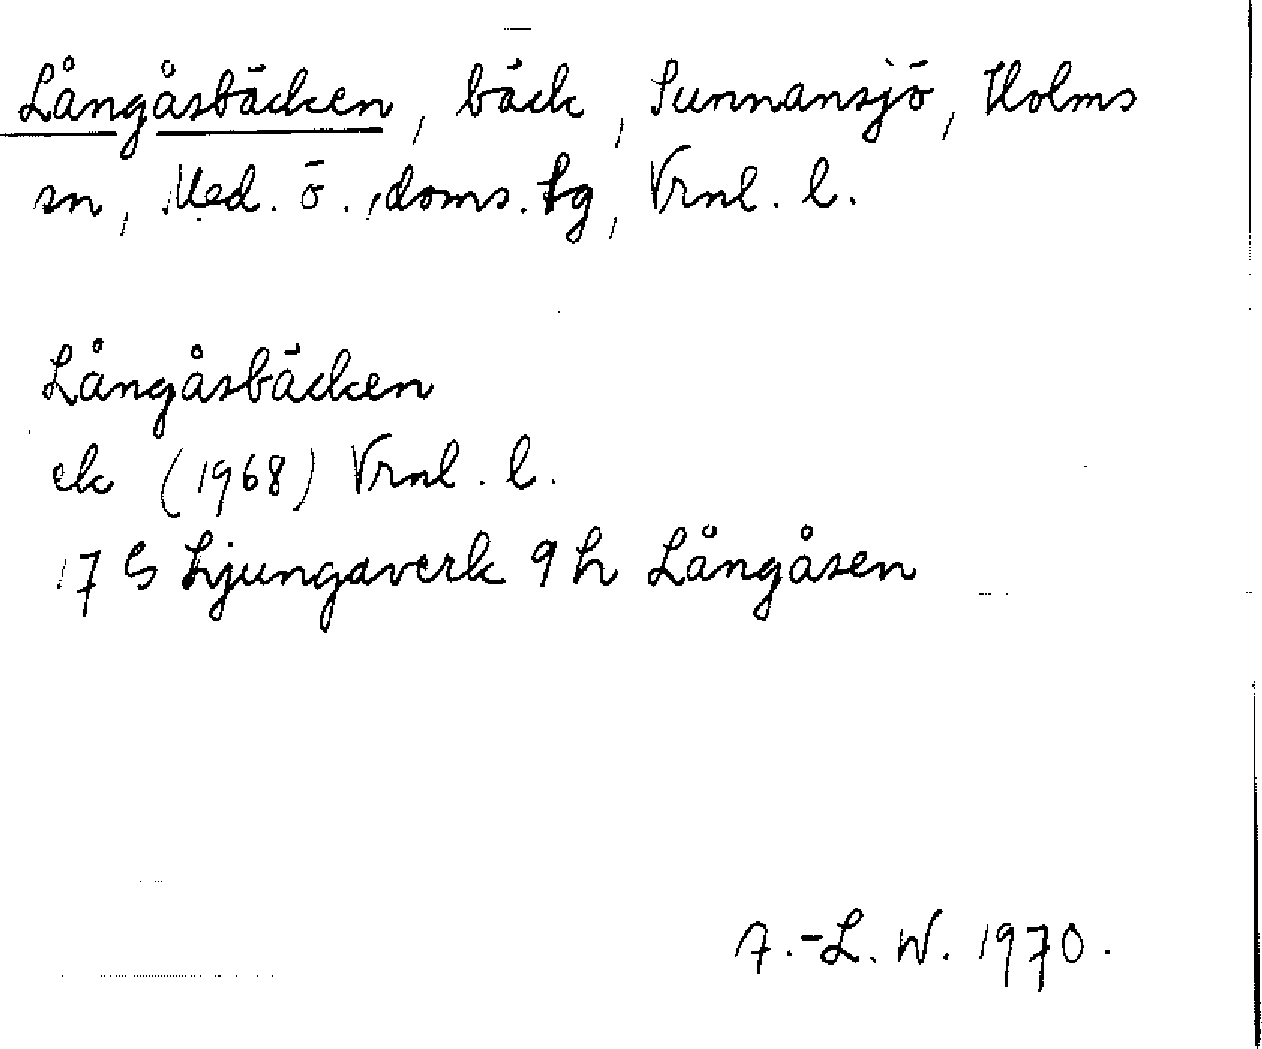 Långåsbäcken, bäck, Sunnansjö, Holms
sn, Med. ö. doms. tg, Vrnl. l.
Långåsbäcken
ek (1968) Vrnl. l.
17 G Ljungaverk 9 h Långåsen
A.-L. W. 1970.